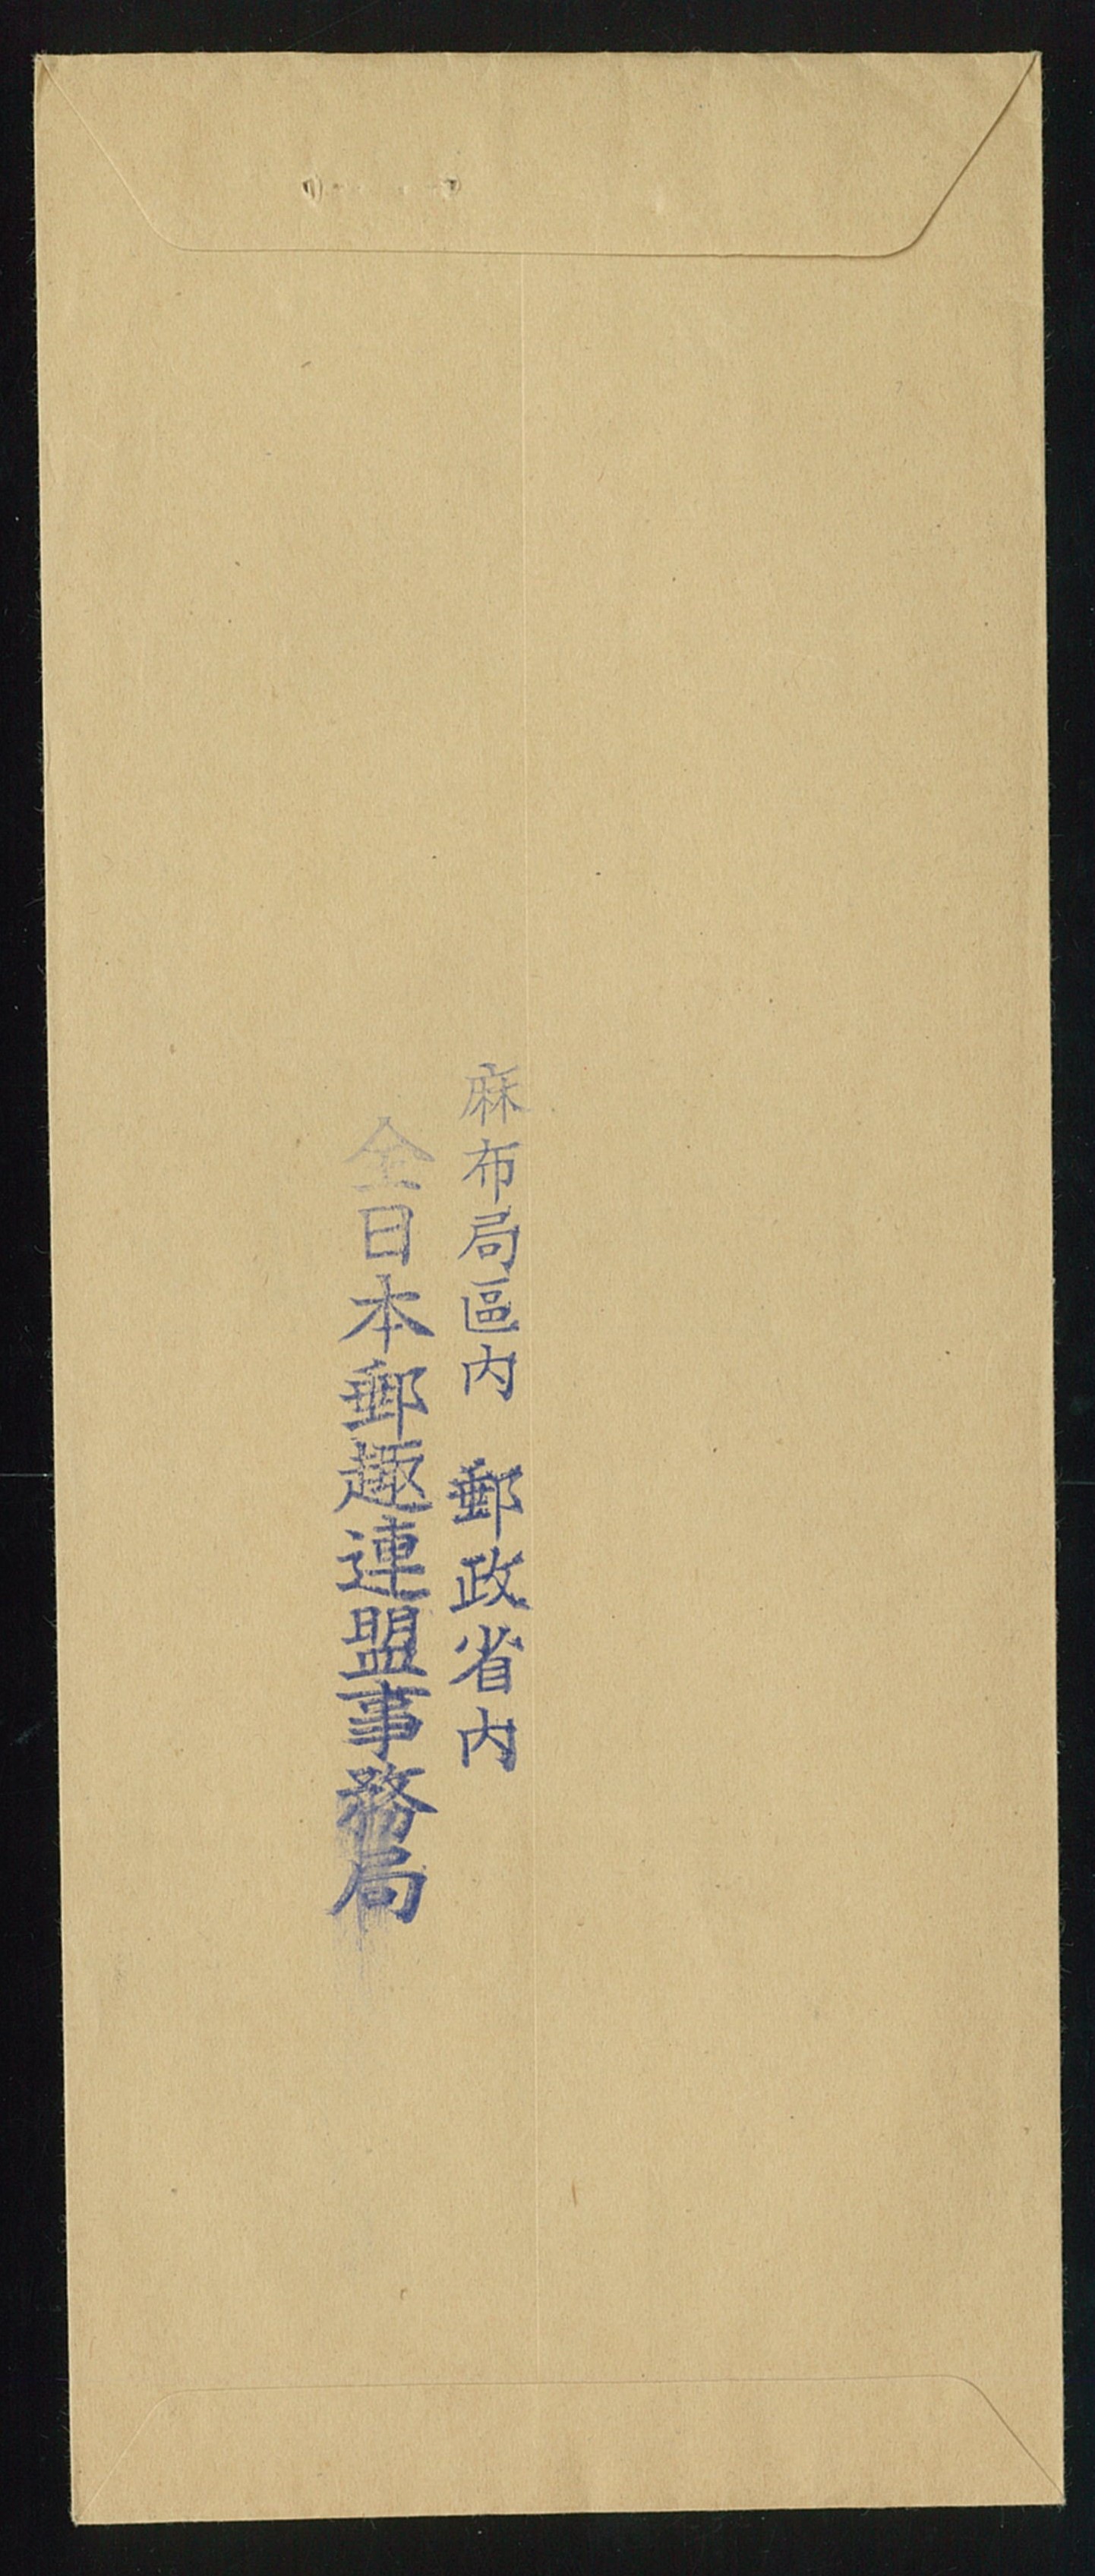 麻布局區内 郵政省内
全日本郵趣連盟事務局